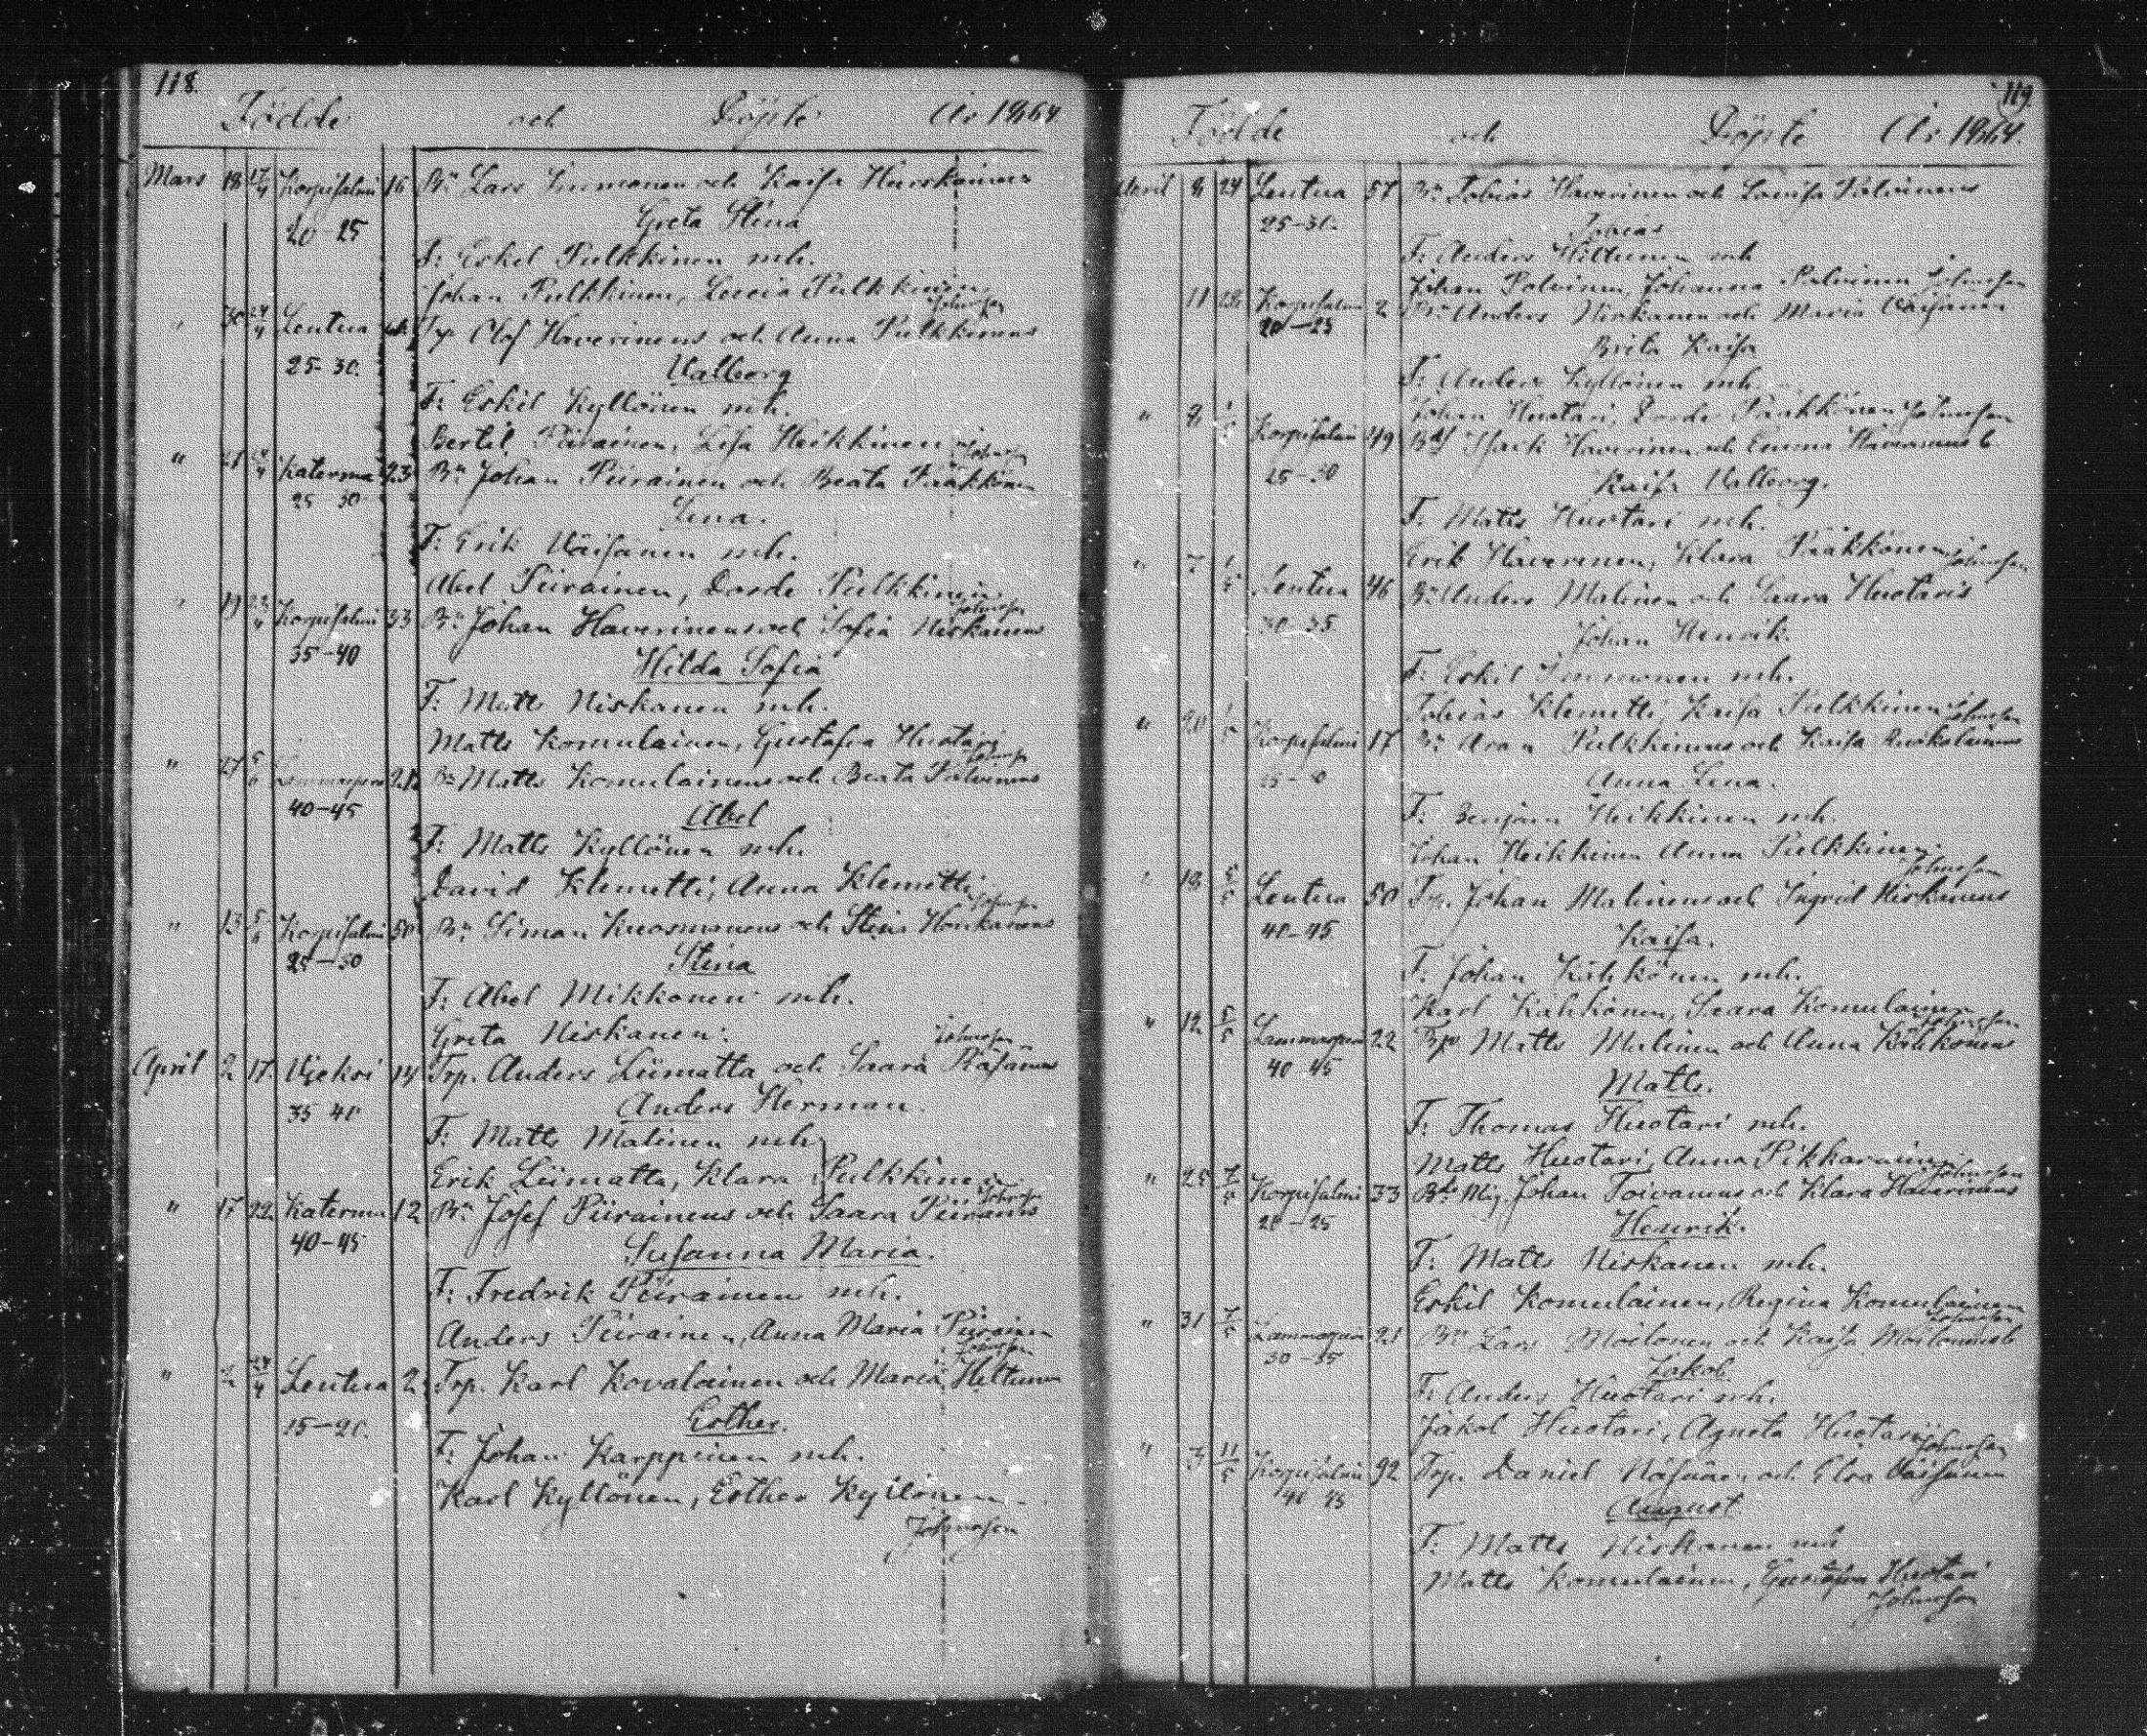 118.
Födde och Döpte År 1864
Mars 18 17/4 Korpisalmi 16 Bn Lars Immonen och Kaisa Hurskainen
20-25 Greta Stina
F: Eskil Pulkkinen mh.
Johan Pulkkinen, Lovisa Pulkkinen
Johnsson
" 30 24/4 Lentua Trp Olof Haverinens och Anna Pulkkinens
25-30. Valborg
F: Eskil Kyllönen mh.
Bertil Piirainen, Lisa Heikkinen
Johnsson
" 21 Katerma 23 Bn Johan Piirainen och Beata Pääkkönen
25-30 Lena.
F: Erik Väisänen mh.
Abel Piirainen, Dorde Pulkkinen
Johnsson
" 19 Korpisalmi 33 Bn Johan Haverinens och Sofia Niskanens
35-40 Hilda Sofia
F: Matts Niskanen mh.
Matts Komulainen, Gustafva Huotari
Johnsson
" 27 Lammasperä Bn Matts Komulainens och Beata Polvinens
40-45 Abel
F: Matts Kyllönen mh.
David Klemetti, Anna Klemetti
Johnsson
" 13 Korpisalmi 50 Bn Simon Kuosmanens och Stina Honkanens
25-30 Stina
F: Abel Mikkonen mh.
Greta Niskanen.
Johnsson
April 2 17. Vieksi 14 Trp. Anders Liimatta och Saara
35 40 Anders Herman.
F: Matts Malinen mh
Erik Liimatta, Klara Pulkkinen
Johnsson
" 17 22 Katerma 12 Bn Josef Piirainens och Saara Piirains
40-45 Susanna Maria.
F: Fredrik Piirainen mh.
Anders Piirainen, Anna Maria Piirainen
Johnsson
" 2 24/4 Lentua Trp. Karl Kovalainen och Maria Hiltunen
15-20. Esther.
F: Johan Karppinen mh.
Karl Kyllönen, Esther Kyllönen
Johnsson
119.
Födde och Döpte År 1864.
April 8 24 Lentua 57 Bn Tobias Haverinen och Lovisa Polvinens
25-30. Tobias
F: Anders Hiltunen mh
Johan Polvinen, Johanna Polvinen Johnsson
11 Korpisalmi 2 Bn Anders Niskanen och Maria Väisänen
20-25 Brita Kaisa
F: Anders Kyllönen mh.
Johan Huotari, Dorde Pääkkönen Johnsson
" 8 Korpisalmi 49 Isack Haverinen och Emma Haverinens
25-30 Kaisa Valborg.
F: Matts Huotari mh.
Erik Haverinen, Klara Pääkkönen Johnsson
" 7 1/5 Lentua 46 Bn Anders Malinen och Saara Huotaris
30-35 Johan Henrik.
F: Eskil Immonen mh.
Tobias Klemetti, Kaisa Pulkkinen Johnsson
" Korpisalmi 17 Bn Pulkkinens och Kaisa
Anna Lena.
F: Benjam Heikkinen mh.
Johan Heikkinen Anna Pulkkinen.
Johnsson
18 5/5 Lentua 50 Trp. Johan Malinens och Ingrid Niskanens
40-45 Kaisa.
F: Johan Kähkönen mh.
Karl Kähkönen, Saara Komulainen
Johnsson
" 12 5/5 Lammasperä 22 Matts Malinen och Anna Kähkönens
40 45 Matts.
F: Thomas Huotari mh.
Matts Huotari, Anna Pikkarainen
Johnsson
" 25 7/5 Korpisalmi 33 Johan Toivanens och Klara Haverinens
20-25 Henrik.
F: Matts Niskanen mh.
Eskil Komulainen, Regina Komulainen
Johnsson
" 31 7/5 Lammasperä 21 Bn Lars Moilanen och Kaisa
30-35 Jakob
F: Anders Huotari mh.
Jakob Huotari, Agneta Huotari Johnsson
" 3 11/5 Korpisalmi 92 Trp. Daniel och Elsa Väisänen
40 45 August
F: Matts Niskanen mh
Matts Komulainen, Gustafva Huotari
Johnsson